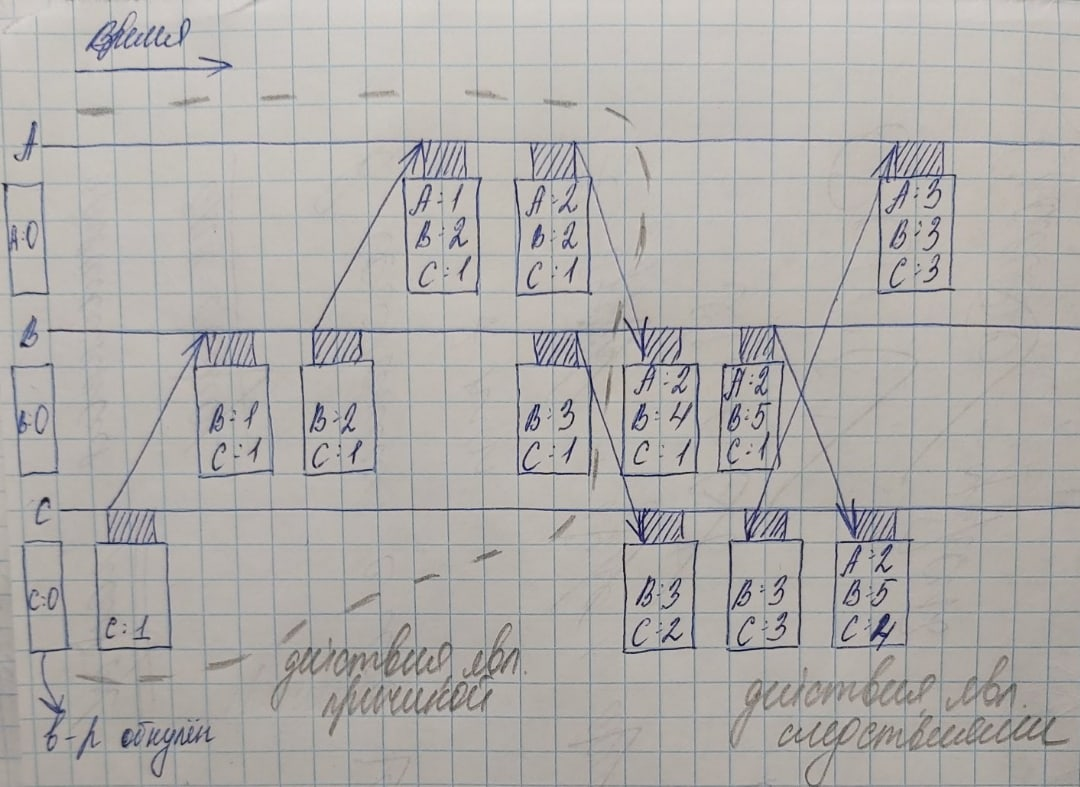 Время
A
A:0
A:1
B:2
C:1
A:2
B:2
C:1
A:3
B:3
C:3
B
B:0
B:1
C:1
B:2
C:1
B:3
C:1
A:2
B:4
C:1
A:2
B:5
C:1
C
C:0
C:1
B:3
C:2
B:3
C:3
A:2
B:5
C:4
в-р обнулён
действия явл.
причиной
действия явл.
следствиями